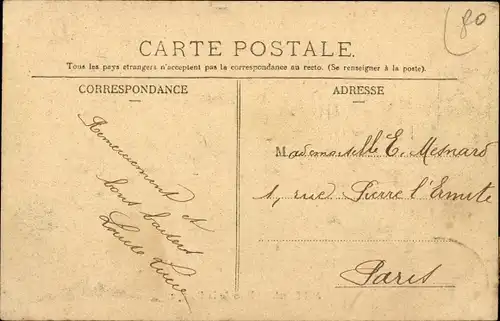 80
CARTE POSTALE.
Tous les pays étrangers n'acceptent pas la correspondance au recto. (Se renseigner à la poste).
CORRESPONDANCE
Remerciement et
bons baisers
ADRESSE
Mademoiselle E. Mesnard
1, rue Pierre l'Ermite
Paris